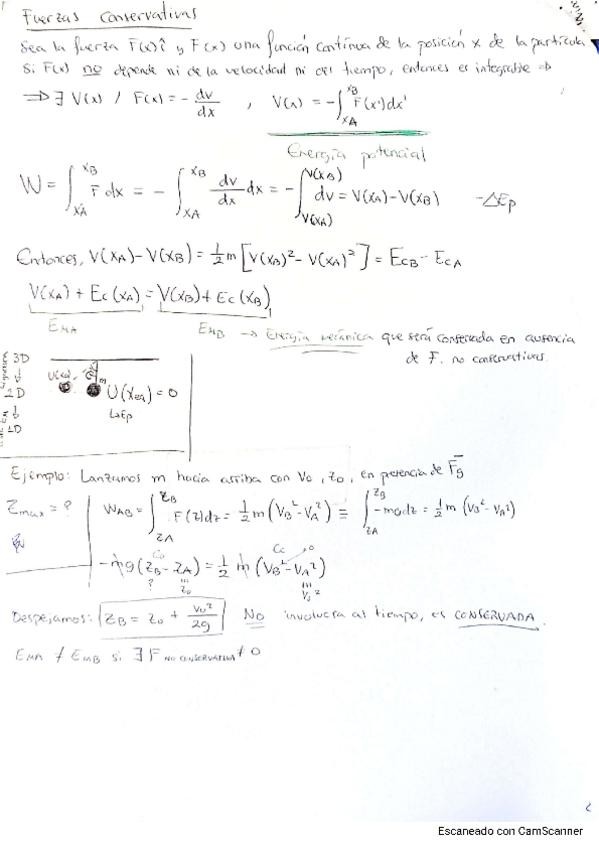 Fuerzas Conservativas
Sea la fuerza F(x)î y F(x) una función continua de la posición x de la partícula
Si F(x) no depende ni de la velocidad ni del tiempo, entonces es integrable ⇒
⇒ ∃ V(x) / F(x) = - dv/dx , V(x) = -∫_{xA}^{xB} F(x')dx'
Energía potencial
W = ∫_{xA}^{xB} F dx = - ∫_{xA}^{xB} dv/dx dx = -∫_{V(xA)}^{V(xB)} dv = V(xA) - V(xB) -ΔEp
Entonces, V(xA) - V(xB) = 1/2 m [V(xB)² - V(xA)²] = EcB - EcA
V(xA) + Ec(xA) = V(xB) + Ec(xB)
EMA EMB → Energía mecánica que será conservada en ausencia
de F. no conservativas.
3D
↓
2D
↓
1D
m
U(xEA) = 0
↳Ep
Ejemplo: Lanzamos m hacia arriba con V0, z0, en presencia de Fg
Zmax = ?
WAB = ∫_{zA}^{zB} F(z)dz = 1/2 m (VB² - VA²) ≡ ∫_{zA}^{zB} -mg dz = 1/2 m (VB² - VA²)
-mg(zB - zA) = 1/2 m (VB² - VA²)
? z0 V0²
Despejamos: zB = z0 + V0²/2g No involucra al tiempo, es CONSERVADA.
EMA ≠ EMB si ∃ F NO CONSERVATIVA ≠ 0
Escaneado con CamScanner